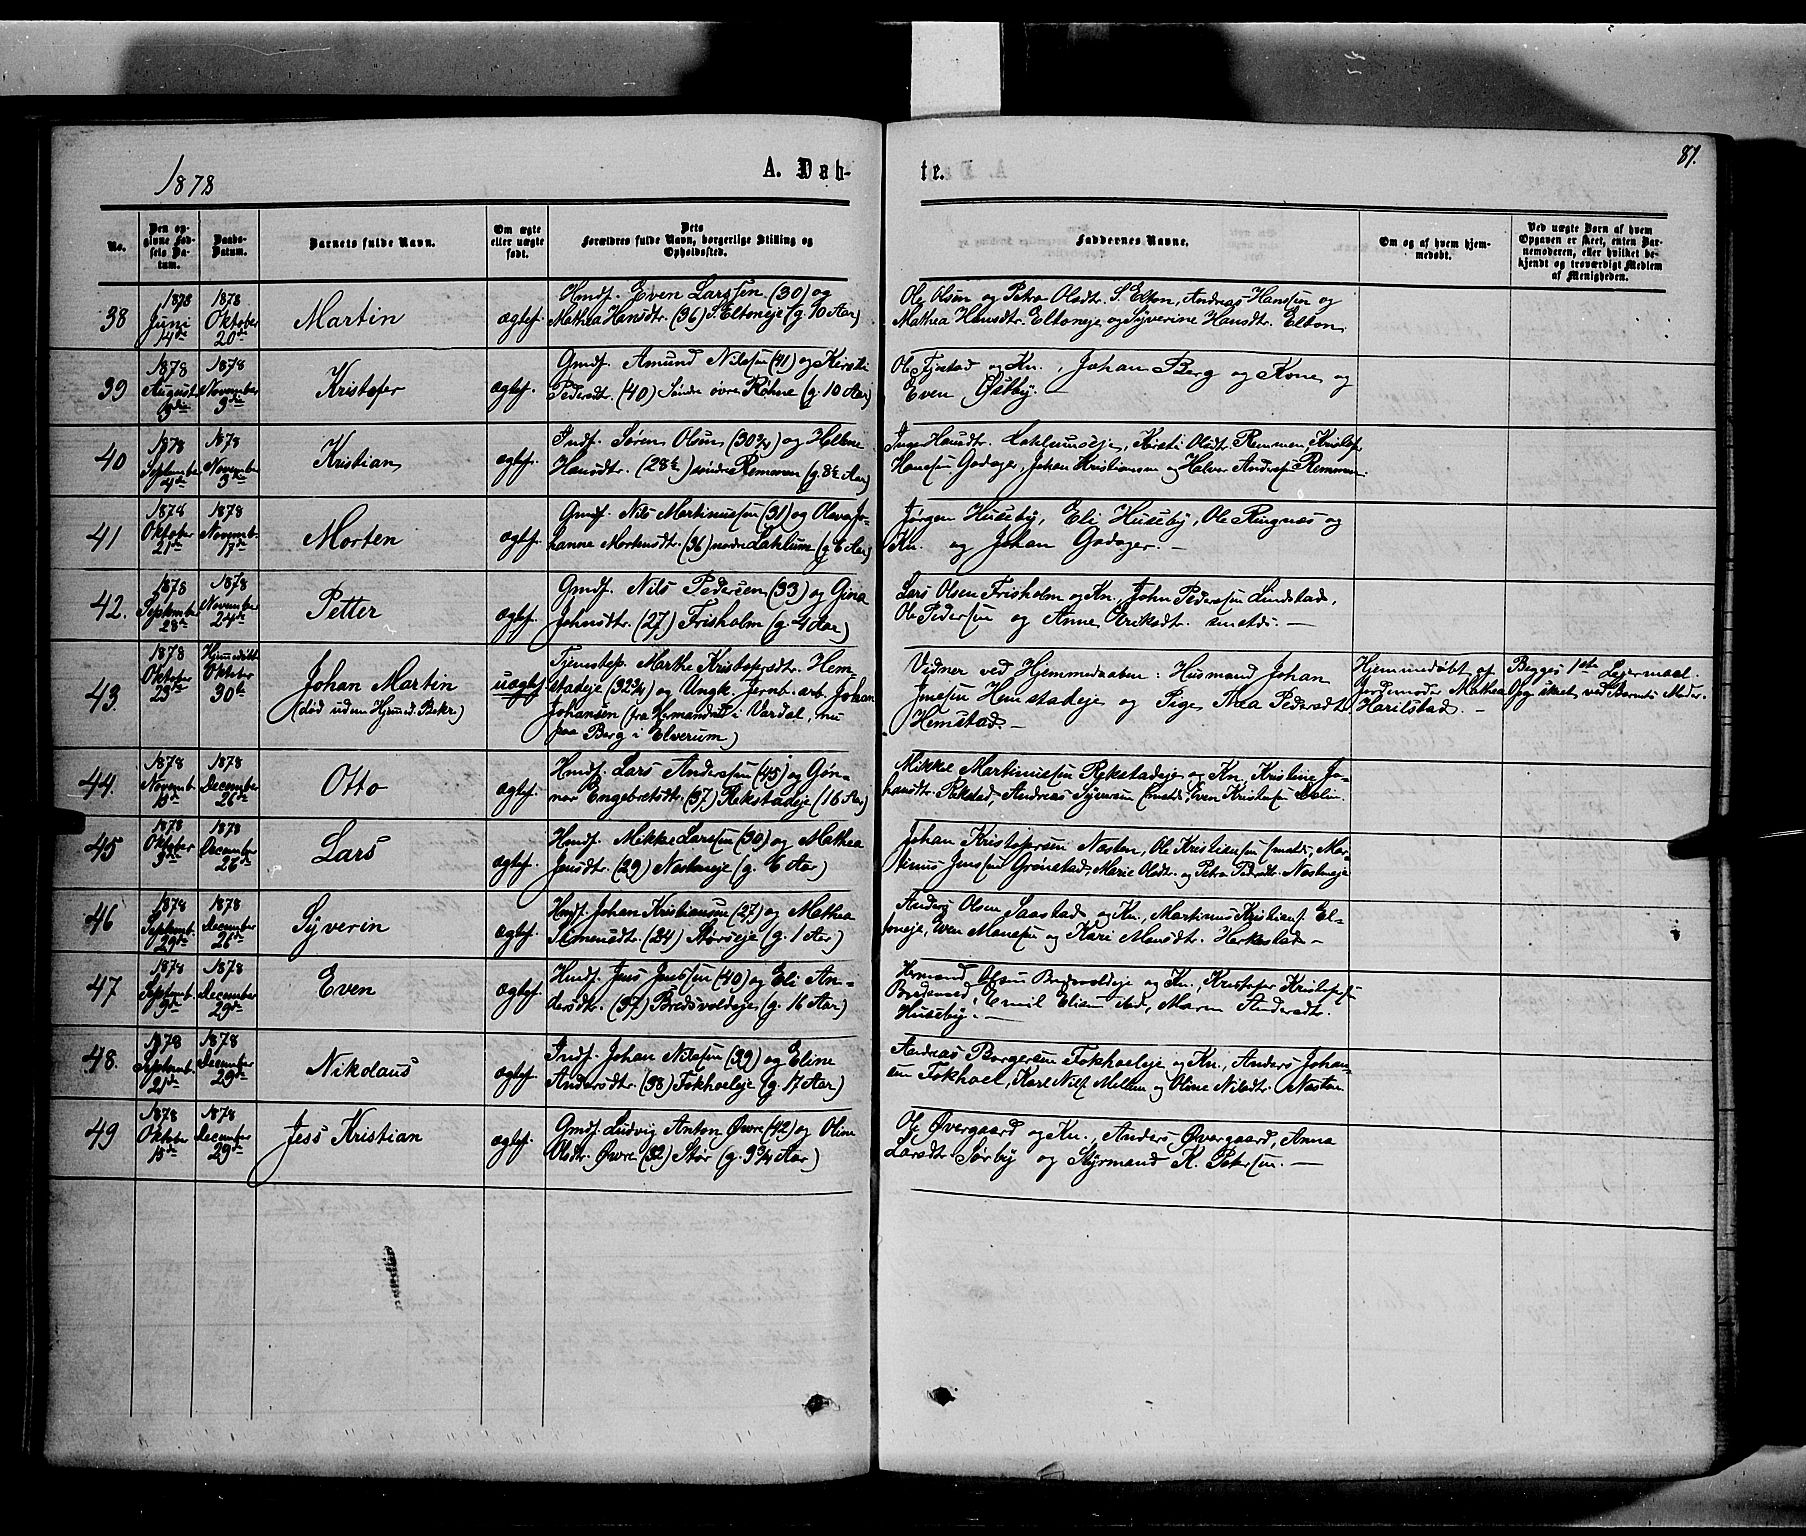 1878
A. Døb-
te.
81.
No.
Den opgivne Fødsels Datum.
Daabs-Datum.
Barnets fulde Navn.
Om ægte eller uægte født.
Dets Forældres fulde Navn, borgerlige Stilling og Opholdssted.
Faddernes Navne.
Om og af hvem hjemmedøbt.
Ved uægte Børn af hvem Opgaven er skeet, enten Barnemoderen, eller hvilket bekjendt og troværdigt Medlem af Menigheden.
38
1878 Juni 14de
1878 Oktober 20de
Martin
ægtef.
Hmdf. Even Larssen (30) og
Mathea Hansdtr. (36) S. Eltoneje (g. 10 Aar)
Ole Olsen og Petra Olsdt. S. Elton, Andreas Hanssen og
Mathea Hansdtr. Eltoneje og Syverine Hansdt. Elton
39
1878 August
1878 November 3die
Kristofer
ægtef.
Gmdf. Amund Nilssen (41) og Kersti
Pedersdt. (40) Søndre øvre Røhne (g. 10 Aar)
Ole Fjestad og Kn., Johan Berg og Kone og
Even Østby. —
40
1878 September 4de
1878 November 3die
Kristian
ægtef.
Indf. Søren Olsen (30¾) og Helene
Hansdtr. (28½) søndre Remmen (g. 8½ Aar)
Hansdtr. Lahlumseje, Kirsti Olsdt. Remmen, Kristofer
Hanssen Godager, Johan Kristiansen og Halvor Anders. Remmen
41
1878 Oktober 21de
1878 Novemb. 17de
Morten
ægtef.
Gmdf. Nils Martinussen (31) og Olava Jo-
hanne Mortensdt. (36) nedre Lahlum (g. 6 Aar)
Jørgen Huseby, Eli Huseby, Ole Ringnæs og
Kn. og Johan Godager. —
42.
1878 September 28de
1878 November 24de
Petter
ægtef.
Gmdf. Nils Pedersen (33) og Gina
Johnsdtr. (27) Frisholm (g. 4 Aar)
Lars Olsen Frisholm og Kn., John Pedersen Lindstad,
Ole Pedersen og Anne Eriksdt. smstds. —
43.
1878 Oktober 23de
Hjemmedøbt Oktober 30te
Johan Martin
(død uden Hjemmed. Bekr.)
uægtef.
Tjenestep. Marthe Kristofersdtr. Hem-
stadeje (32¾) og Ungk. Jernb. arb. Johan
Johansen (fra i Vardal, nu
paa Berg i Elverum)
Vidner ved Hjemmedaaben: Husmand Johan
Jensen Hemstadeje og Pige Thea Pedersdt.
Hemstad. —
Hjemmedøbt af
Jordemoder Mathea
Harilstad. —
Begges 1ste Lejermaal.
Opg. skeet ved Barnets Moder.
44.
1878 Novemb.
1878 December 26de
Otto
ægtef.
Hmdf. Lars Anderssen (45) og Gøn-
nor Engebretsdt. (37) Rekstadeje (16 Aar)
Mikkel Martinussen Rekstadeje og Kn., Kristine Jo-
hansdtr. Rekstad, Andreas Syversen smstds, Even Kristofersen Dalin.
45
1878 Oktober
1878 December 26de
Lars
ægtef.
Hmdf. Mikkel Larssen (30) og Mathea
Jensdtr. (29) Nestmeje (g. 6 Aar)
Johan Kristofersen Næsten, Ole Kristiansen smstds, Mar-
tinus Jenssen Grønstad, Marie Olsdt. og Petra Pedersdt. Nestmeje
46
1878 Septemb. 29de
1878 December 26de
Syverin
ægtef.
Hmdf. Johan Kristiansen (27) og Mathea
Simensdt. (24) Størseje (g. 1 Aar)
Anders Olsen Saastad og Kn., Martinus Kristians. El-
toneje, Even Monssen og Kari Monsdt. Herkestad —
47
1878 Septemb.
1878 December 29de
Even
ægtef.
Hmdf. Jens Jenssen (40) og Eli An-
dersdtr. (37) Bredsvoldeje (g. 16 Aar)
Hermand Olsen Bredsvoldeje og Kn., Kristofer Kristofersen
Bordsmed, Emil Eliassen ibid, Maren Andersdt.
Huseby. —
48.
1878 Septemb. 21de
1878 December 29de
Nikolaus
ægtef.
Indf. Johan Nilssen (39) og Eline
Andersdtr. (38) Fokholeje (g. 17 Aar)
Andreas Borgersen Fokholeje og Kn., Anders Johan-
sen Fokhoel, Karl Nils. Mellum og Oline Nilsdt. Næsten
49
1878 Oktober 15de
1878 December 29de
Jess Kristian
ægtef.
Gmdf. Ludvig Anton Øvre (42) og Oline
Olsdtr. Øvre (32) Stør (g. 9¾ Aar)
Ole Øvergaard og Kn., Anders Øvergaard, Anna
Larsdt. Sørby og Styrmand K. Petersen. —